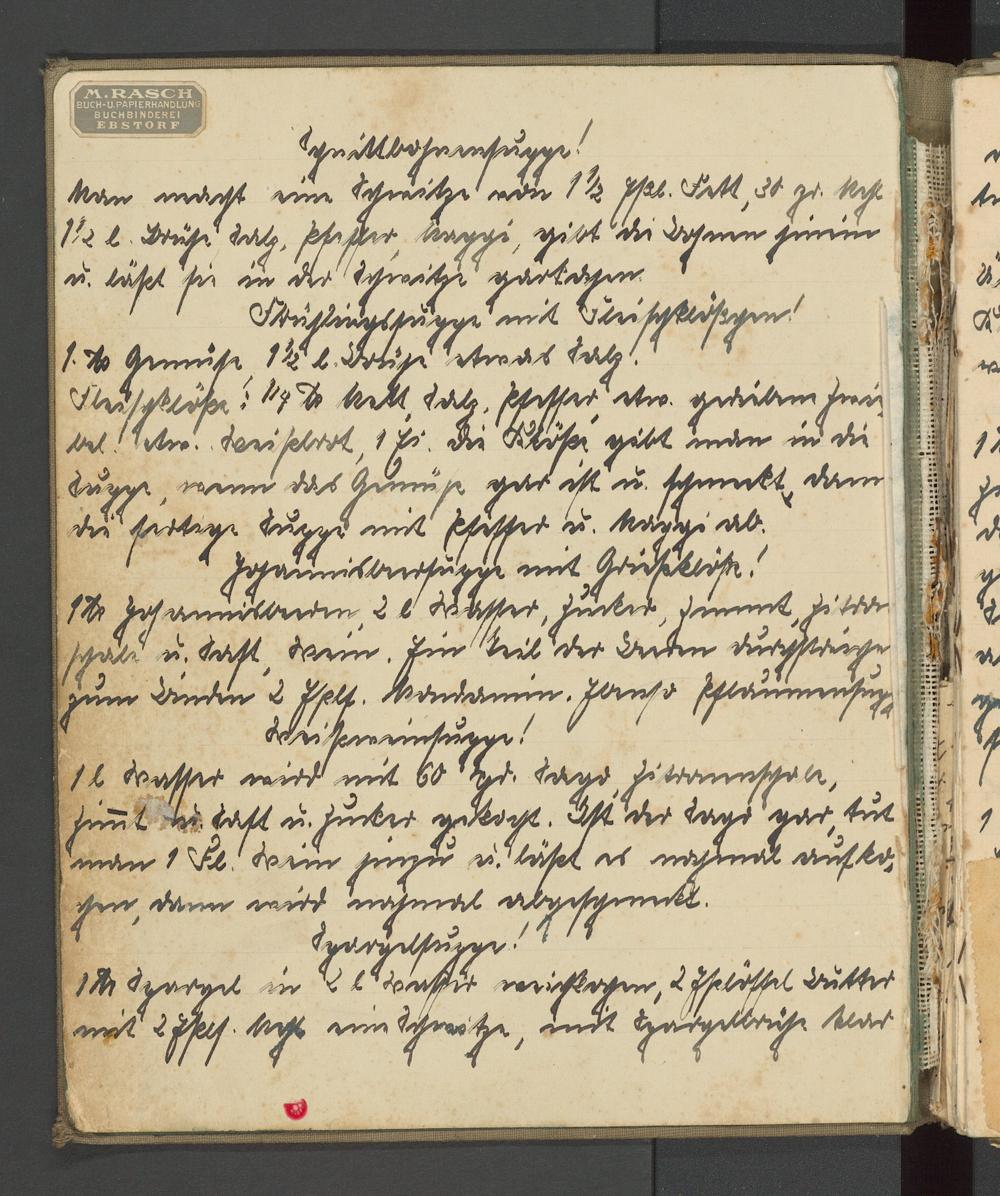 M. RASCH
BUCH- U. PAPIERHANDLUNG
BUCHBINDEREI
EBSTORF
Schnittbohnensuppe!
Man macht eine Schwitze von 1 1/2 Eßl. Fett, 30 gr. Mehl
1 1/2 l. Brühe, Salz, Pfeffer, Maggi, gibt die Bohnen hinein
u. läßt sie in der Schwitze garkochen.
Frühlingssuppe mit Fleischklößchen!
1. ℔ Gemüse 1 1/2 l. Brühe etwas Salz.
Fleischklöße: 1/4 ℔ Mett, Salz, Pfeffer, etw. geriebene Zwie-
bel. etw. Weißbrot, 1 Ei. Die Klöße gibt man in die
Suppe, wenn das Gemüse gar ist u. schmeckt dann
die fertige Suppe mit Pfeffer u. Maggi ab.
Johannisbeersuppe mit Griesklöße!
1 ℔ Johannisbeeren, 2 l Wasser, Zucker, Zimmt, Zitron
schale u. Saft, Wein. Ein Teil der Beeren durchstreichen
zum Binden 2 Eßlf. Mondamin. Ebenso Pflaumensuppe
Weißweinsuppe!
1 l Wasser wird mit 60 gr. Sago, Zitronenschale,
Zimmt u. Saft u. Zucker gekocht. Ist der Sago gar, tut
man 1 Fl. Wein hinzu u. läßt es nochmal aufko-
chen, dann wird nochmal abgeschmeckt.
Spargelsuppe!
1 ℔ Spargel in 2 l Wasser weichkochen, 2 Eßlöffel Butter
mit 2 Eßlf. Mehl eine Schwitze, mit Spargelbrühe klar